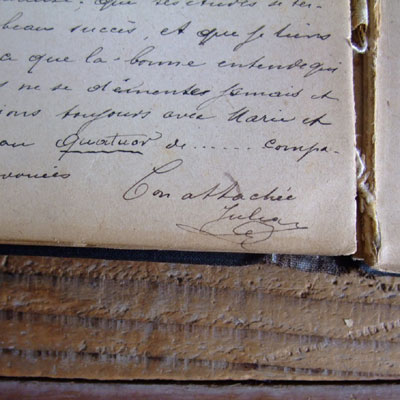 que ses études se ter-
beau succès, et que je tiens
a que la bonne entende qui
s ne se démentes jamais et
ions toujours avec Marie et
au Quatuor de ...... compa-
vouées
Ton attachée
Julia